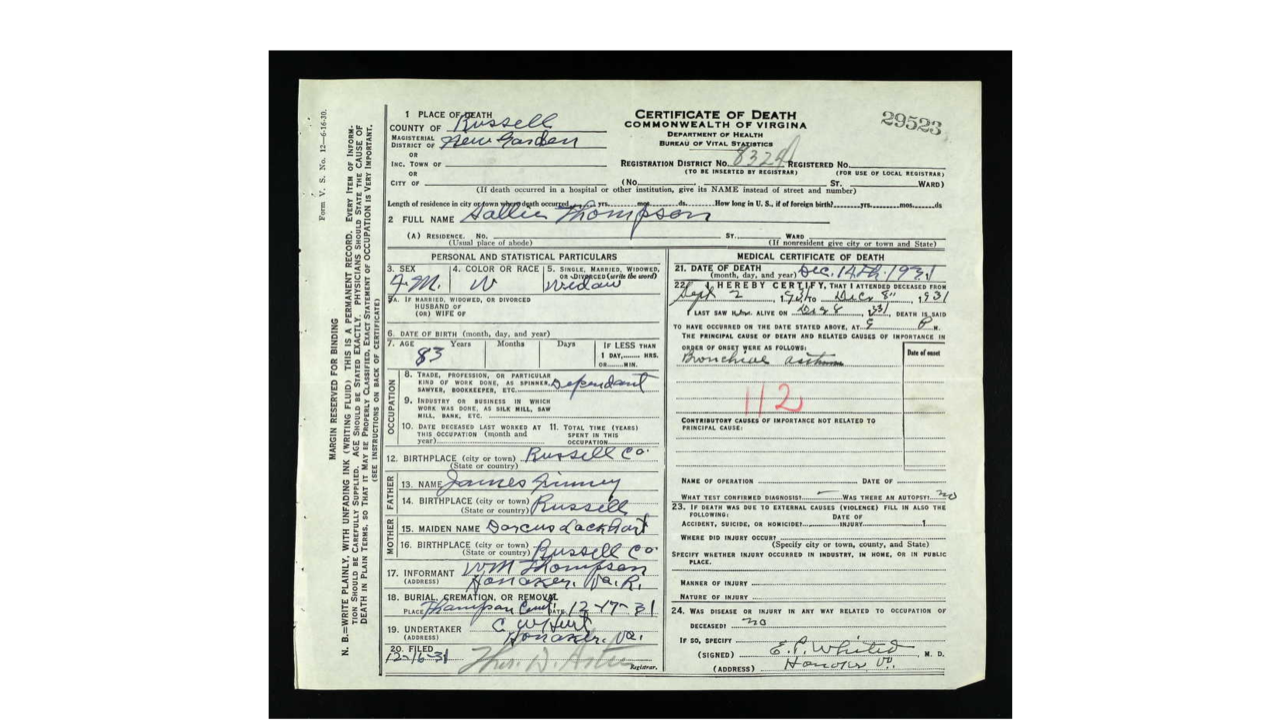 Form V. S. No. 12—6-16-30.
MARGIN RESERVED FOR BINDING
N. B.—WRITE PLAINLY, WITH UNFADING INK (WRITING FLUID) THIS IS A PERMANENT RECORD. EVERY ITEM OF INFORM-
TION SHOULD BE CAREFULLY SUPPLIED. AGE SHOULD BE STATED EXACTLY. PHYSICIANS SHOULD STATE THE CAUSE OF
DEATH IN PLAIN TERMS, SO THAT IT MAY BE PROPERLY CLASSIFIED. EXACT STATEMENT OF OCCUPATION IS VERY IMPORTANT.
(SEE INSTRUCTIONS ON BACK OF CERTIFICATE)
1 PLACE OF DEATH
COUNTY OF Russell
MAGISTERIAL DISTRICT OF New Garden
OR
INC. TOWN OF
OR
CITY OF
CERTIFICATE OF DEATH
COMMONWEALTH OF VIRGINIA
DEPARTMENT OF HEALTH
BUREAU OF VITAL STATISTICS
29523
REGISTRATION DISTRICT NO. REGISTERED NO.
(TO BE INSERTED BY REGISTRAR) (FOR USE OF LOCAL REGISTRAR)
(No. ST. WARD)
(If death occurred in a hospital or other institution, give its NAME instead of street and number)
Length of residence in city or town where death occurred yrs. mos. ds. How long in U. S., if of foreign birth? yrs. mos. ds
2 FULL NAME Sallie Thompson
(A) RESIDENCE. NO. ST. WARD
(Usual place of abode) (If nonresident give city or town and State)
PERSONAL AND STATISTICAL PARTICULARS
3. SEX 4. COLOR OR RACE 5. SINGLE, MARRIED, WIDOWED,
OR DIVORCED (write the word)
W Widow
5A. IF MARRIED, WIDOWED, OR DIVORCED
HUSBAND OF
(OR) WIFE OF
6. DATE OF BIRTH (month, day, and year)
7. AGE Years Months Days IF LESS THAN
83 1 DAY, HRS.
OR MIN.
OCCUPATION
8. TRADE, PROFESSION, OR PARTICULAR
KIND OF WORK DONE, AS SPINNER,
SAWYER, BOOKKEEPER, ETC. Dependant
9. INDUSTRY OR BUSINESS IN WHICH
WORK WAS DONE, AS SILK MILL, SAW
MILL, BANK, ETC.
10. DATE DECEASED LAST WORKED AT 11. TOTAL TIME (YEARS)
THIS OCCUPATION (month and SPENT IN THIS
year) OCCUPATION
12. BIRTHPLACE (city or town) Russell Co.
(State or country)
FATHER
13. NAME James
14. BIRTHPLACE (city or town) Russell
(State or country)
MOTHER
15. MAIDEN NAME Darcus Lackhart
16. BIRTHPLACE (city or town) Russell Co
(State or country)
17. INFORMANT WM Thompson
(ADDRESS) Honaker, Va. R.
18. BURIAL, CREMATION, OR REMOVAL
PLACE Thompson Cem DATE 12-17-31
19. UNDERTAKER C W Hurt
(ADDRESS) Honaker, Va.
20. FILED
12-16-31 Registrar.
MEDICAL CERTIFICATE OF DEATH
21. DATE OF DEATH
(month, day, and year) Dec. 14th, 1931
22. I HEREBY CERTIFY, THAT I ATTENDED DECEASED FROM
Sept 2, TO Dec 8", 1931
I LAST SAW ALIVE ON Dec 8, 31, DEATH IS SAID
TO HAVE OCCURRED ON THE DATE STATED ABOVE, AT 9 P M.
THE PRINCIPAL CAUSE OF DEATH AND RELATED CAUSES OF IMPORTANCE IN
ORDER OF ONSET WERE AS FOLLOWS: Date of onset
Bronchial asthma
112
CONTRIBUTORY CAUSES OF IMPORTANCE NOT RELATED TO
PRINCIPAL CAUSE:
NAME OF OPERATION DATE OF
WHAT TEST CONFIRMED DIAGNOSIS? WAS THERE AN AUTOPSY? no
23. IF DEATH WAS DUE TO EXTERNAL CAUSES (VIOLENCE) FILL IN ALSO THE
FOLLOWING:
DATE OF
ACCIDENT, SUICIDE, OR HOMICIDE? INJURY
WHERE DID INJURY OCCUR?
(Specify city or town, county, and State)
SPECIFY WHETHER INJURY OCCURRED IN INDUSTRY, IN HOME, OR IN PUBLIC
PLACE.
MANNER OF INJURY
NATURE OF INJURY
24. WAS DISEASE OR INJURY IN ANY WAY RELATED TO OCCUPATION OF
DECEASED? no
IF SO, SPECIFY
(SIGNED) E. P. Whited M. D.
(ADDRESS) Honaker Va.